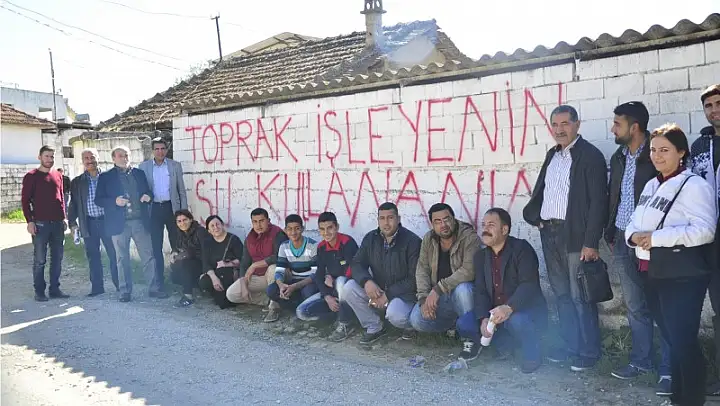 TOPRAK İŞLEYENİN
SU KULLANANIN